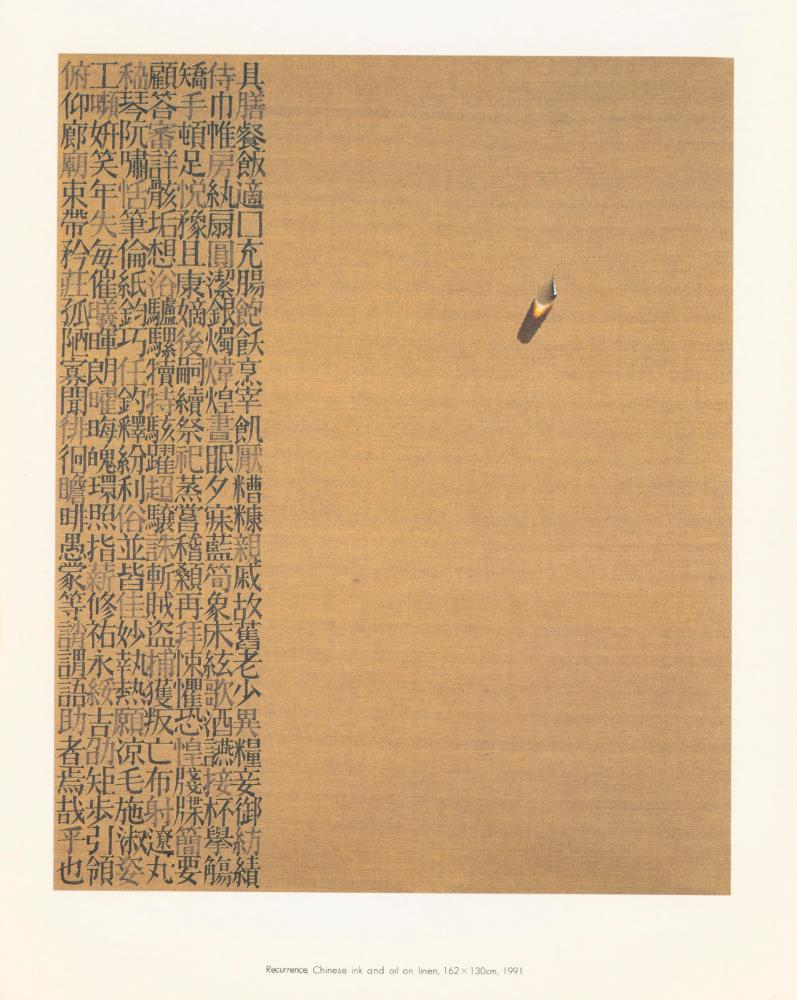 具膳餐飯適口充腸飽飫烹宰飢厭糟糠親戚故舊老少異糧妾御紡績
侍巾帷房紈扇圓潔銀燭煒煌晝眠夕寐藍筍象床絃歌酒讌接杯擧觴
矯手頓足悅豫且康嫡後嗣續祭祀蒸嘗稽顙再拜悚懼恐惶牋牒簡要
顧答審詳骸垢想浴驢騾犢特駭躍超驤誅斬賊盜捕獲叛亡布射遼丸
嵇琴阮嘯恬筆倫紙鈞巧任釣釋紛利俗並皆佳妙執熱願涼毛施淑姿
工嚬妍笑年矢每催曦暉朗曜晦魄環照指薪修祐永綏吉劭矩步引領
俯仰廊廟束帶矜莊孤陋寡聞徘徊瞻眺愚蒙等誚謂語助者焉哉乎也
Recurrence, Chinese ink and oil on linen, 162×130cm, 1991